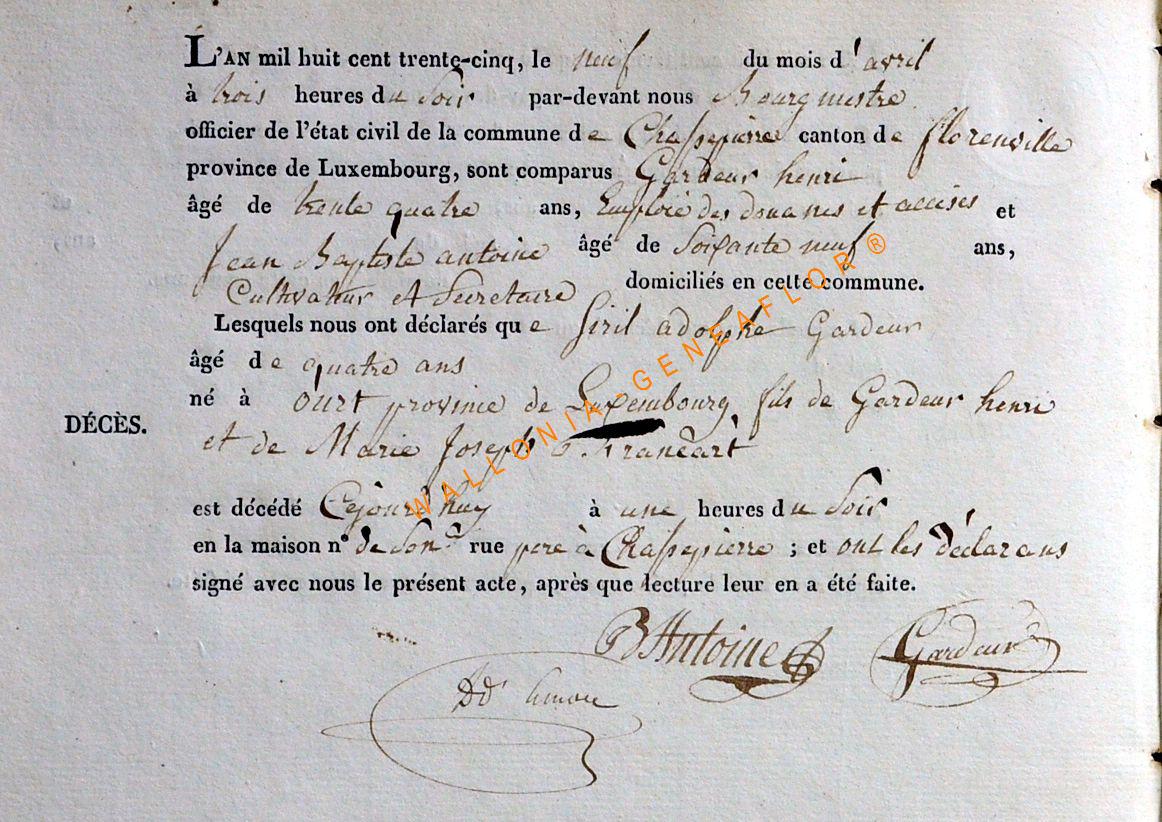 L'AN mil huit cent trente-cinq, le neuf du mois d'avril
à trois heures du Soir par-devant nous Bourgmestre
officier de l'état civil de la commune de Chassepierre canton de florenville
province de Luxembourg, sont comparus Gardeur henri
âgé de trente quatre ans, Emploié des douanes et accises et
Jean Baptiste antoine âgé de Soixante neuf ans,
Cultivateur et Secretaire domiciliés en cette commune.
Lesquels nous ont déclarés que Siril adolphe Gardeur
âgé de quatre ans
né à ourt province de Luxembourg, fils de Gardeur henri
DÉCÈS.
et de Marie Joseph francart
est décédé Cejourd'huy à une heures du Soir
en la maison n° de Son rue pere à Chassepierre ; et ont les déclarans
signé avec nous le présent acte, après que lecture leur en a été faite.
B Antoine Gardeur
WALLONIA-GENEAFLOR®